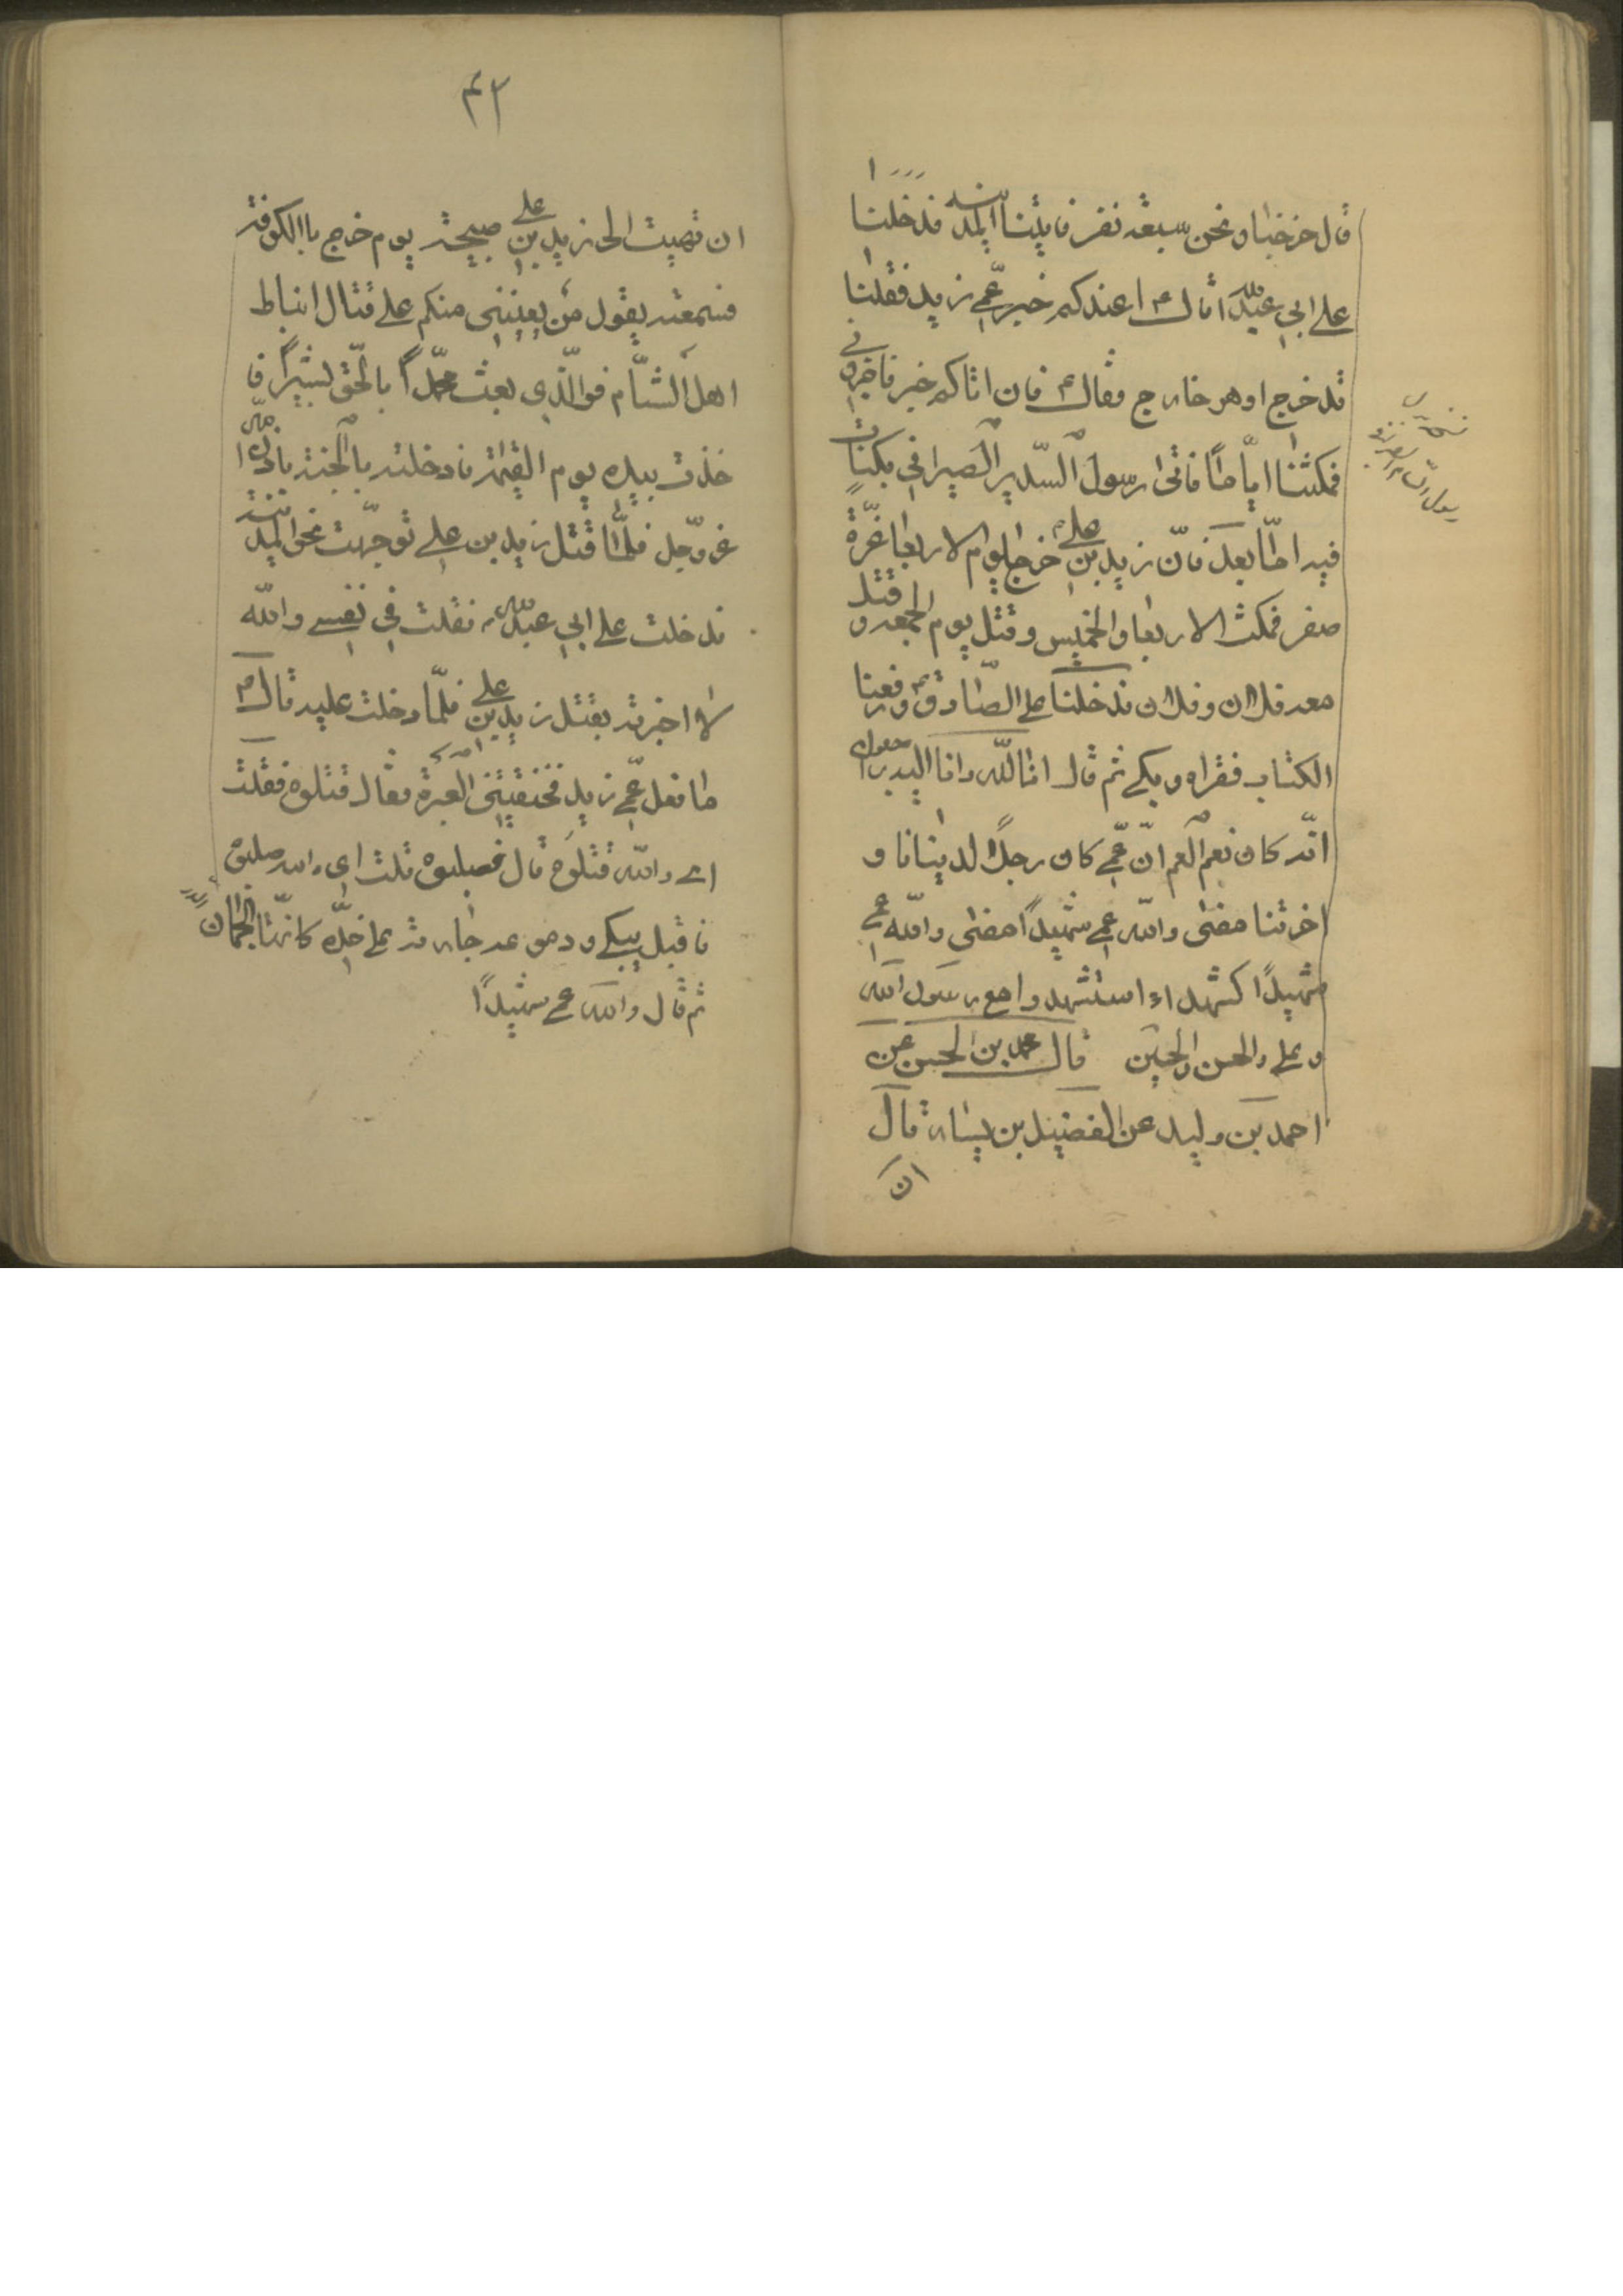 قال خرجنا ونحن سبعة نفر فاتينا المدينة فدخلنا
على ابي عبد الله قال ء اعندكم خبر عمّي زيد فقلنا
قد خرج او هو خارج فقال ء فان اتاكم خبر فاخبروني
فمكثنا ايّاماً فاتى رسول السّدير الصيرافي بكتاب
فيه امّا بعد فانّ زيد بن علي ء خرج يوم الاربعا غرّة
صفر فمكث الاربعا والخميس وقتل يوم الجمعه و قتل
معه فلان وفلان فدخلنا على الصّادق ء ودفعنا
الكتاب فقراه وبكى ثم قال انا للّه وانا اليه راجعون
انّه كان نعم العم انّ عمّي كان رجلاً لدينانا و
اخرتنا مضى واللّه عمي شهيداً مضى واللّه عمي
شهيداً كشهداء استشهدوا مع رسول اللّه
وعلي والحسن والحسين قال محمد بن الحسن عن
احمد بن وليد عن الفضيل بن يسار قال
ان
٤٢
ان تهيت الى زيد بن علي صبيحة يوم خرج باالكوفة
فسمعته يقول من يعينني منكم على قتال انباط
اهل الشّام فوالّذي بعث محمّداً بالحق بشيراً فا
خذت بيده يوم القيمة فادخلته بالجنة باذن اللّه
عزوجل فلمّا قتل زيد بن علي توجّهت نحو المدينة
فدخلت على ابي عبد الله ء فقلت في نفسي واللّه
لا اخبرته بقتل زيد بن علي فلمّا دخلت عليه قال ء
ما فعل عمّي زيد فخنقتني العبرة فقال قتلوه فقلت
اي واللّه قتلوه قال فصلبوه قلت اي والله صلبوه
فاقبل يبكي ودموعه جارية على خدّه كانّها الجمان
ثم قال والله عمي شهيداً